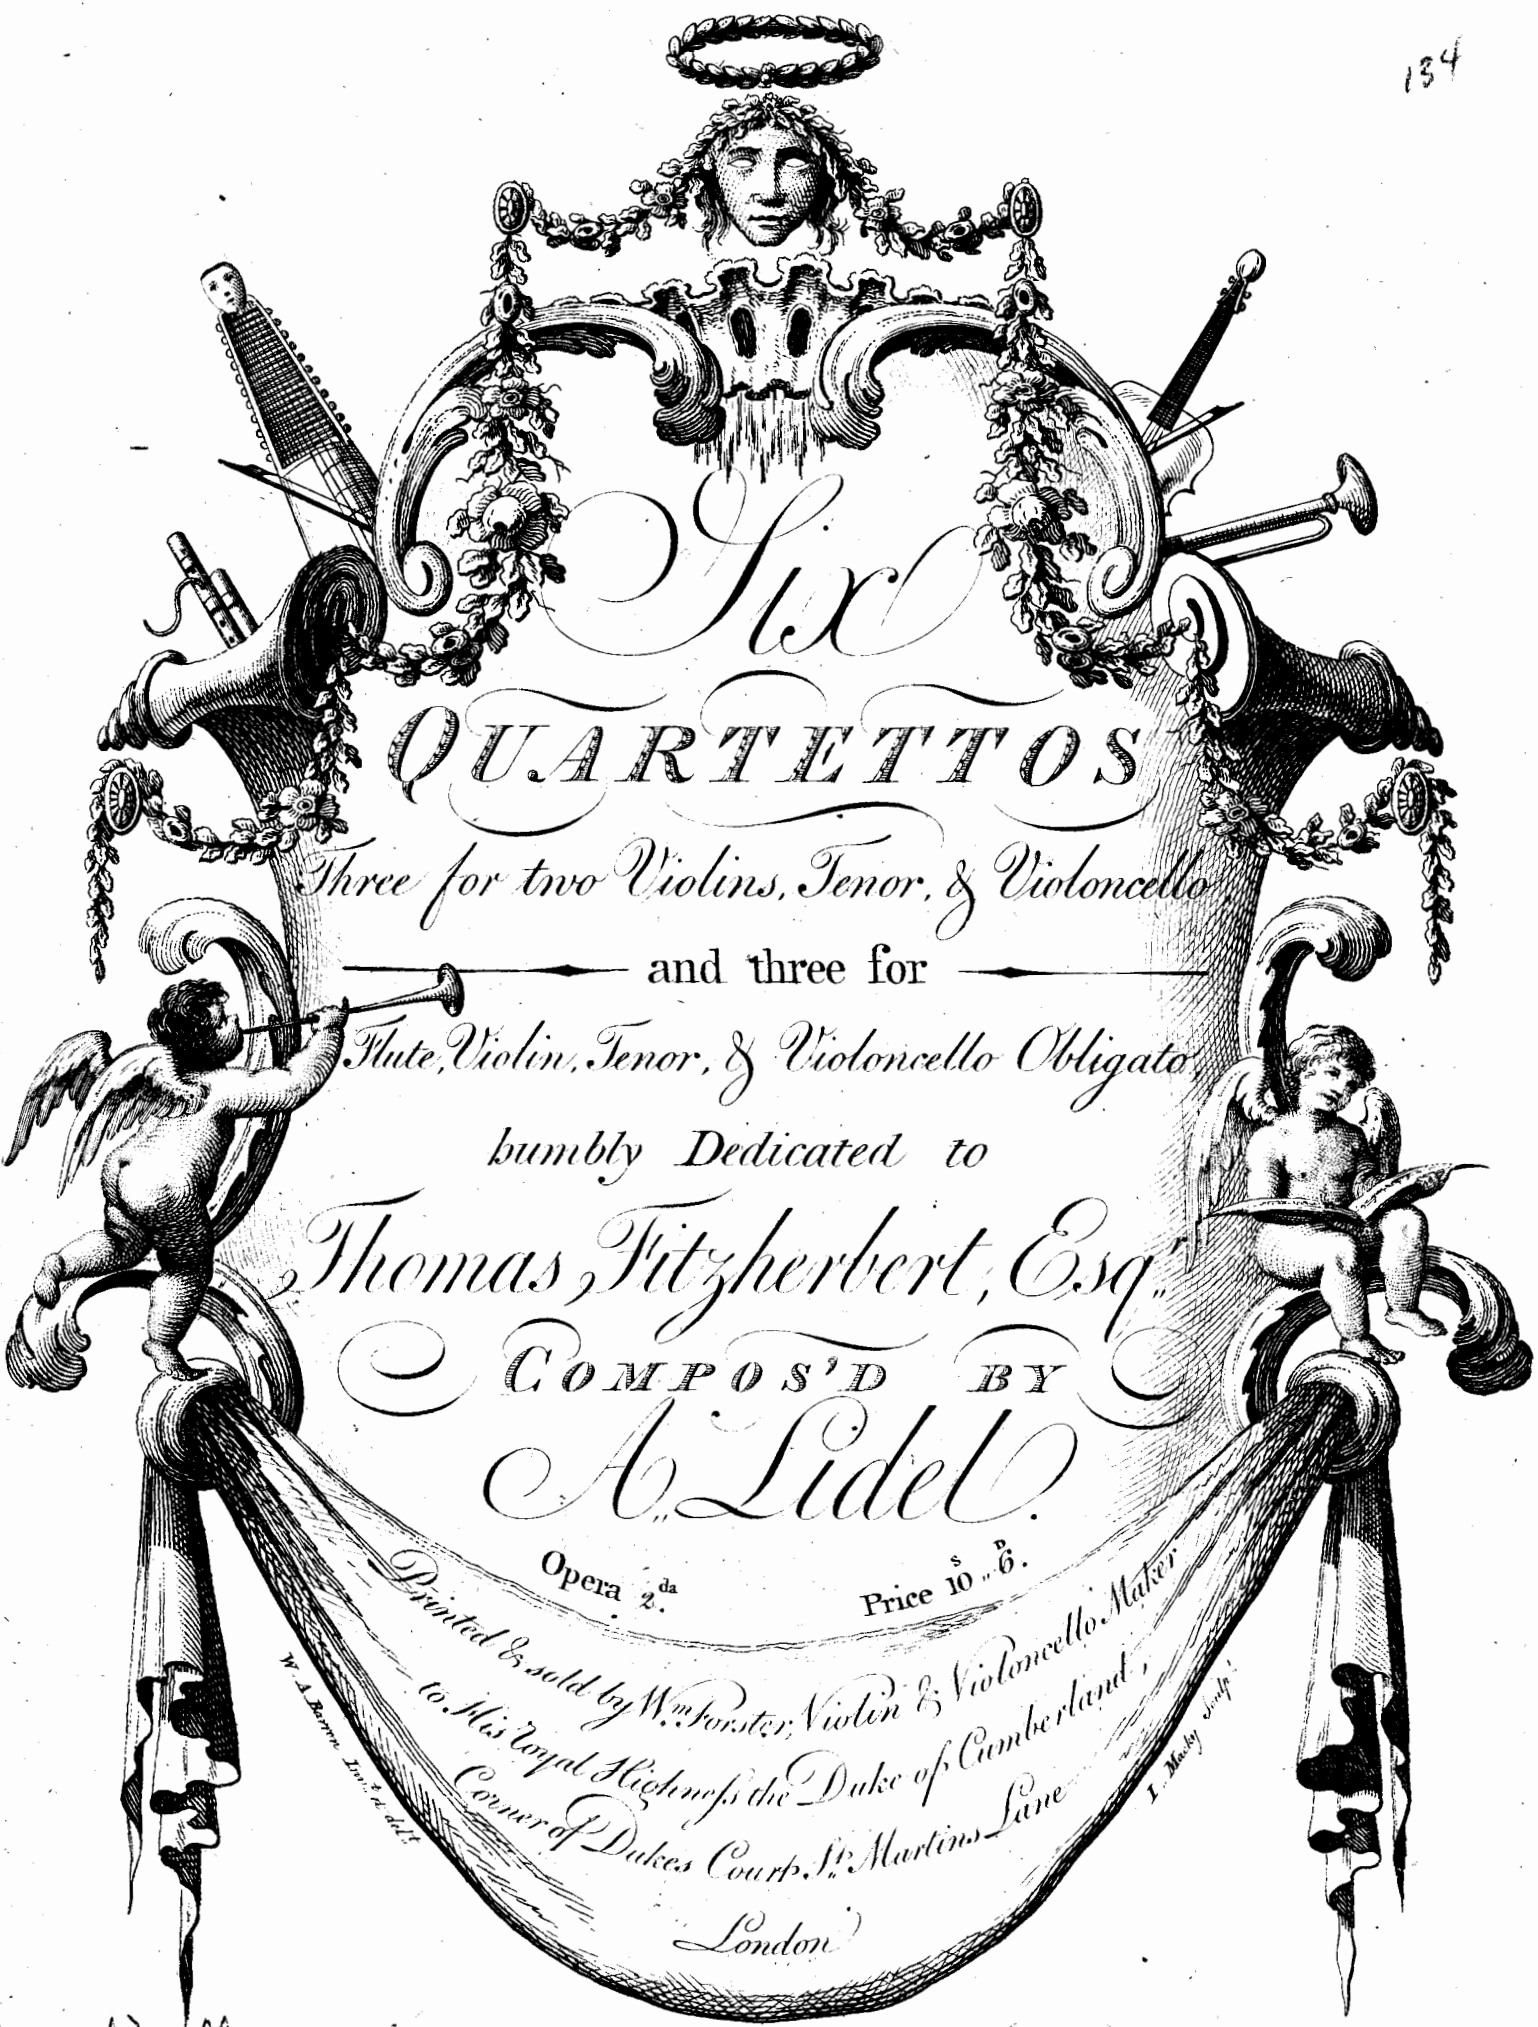 134
Six
QUARTETTOS
Three for two Violins, Tenor, & Violoncello
and three for
Flute, Violin, Tenor, & Violoncello Obligato,
humbly Dedicated to
Thomas Fitzherbert, Esqr.
COMPOS'D BY
A. Lidel.
Opera 2.da
Price 10s..6d.
Printed & sold by Wm. Forster, Violin & Violoncello Maker
to His Royal Highneſs the Duke of Cumberland,
Corner of Dukes Court St. Martins Lane
London
W. A. Barron Invt. & delt.
I. Macky Sculpt.